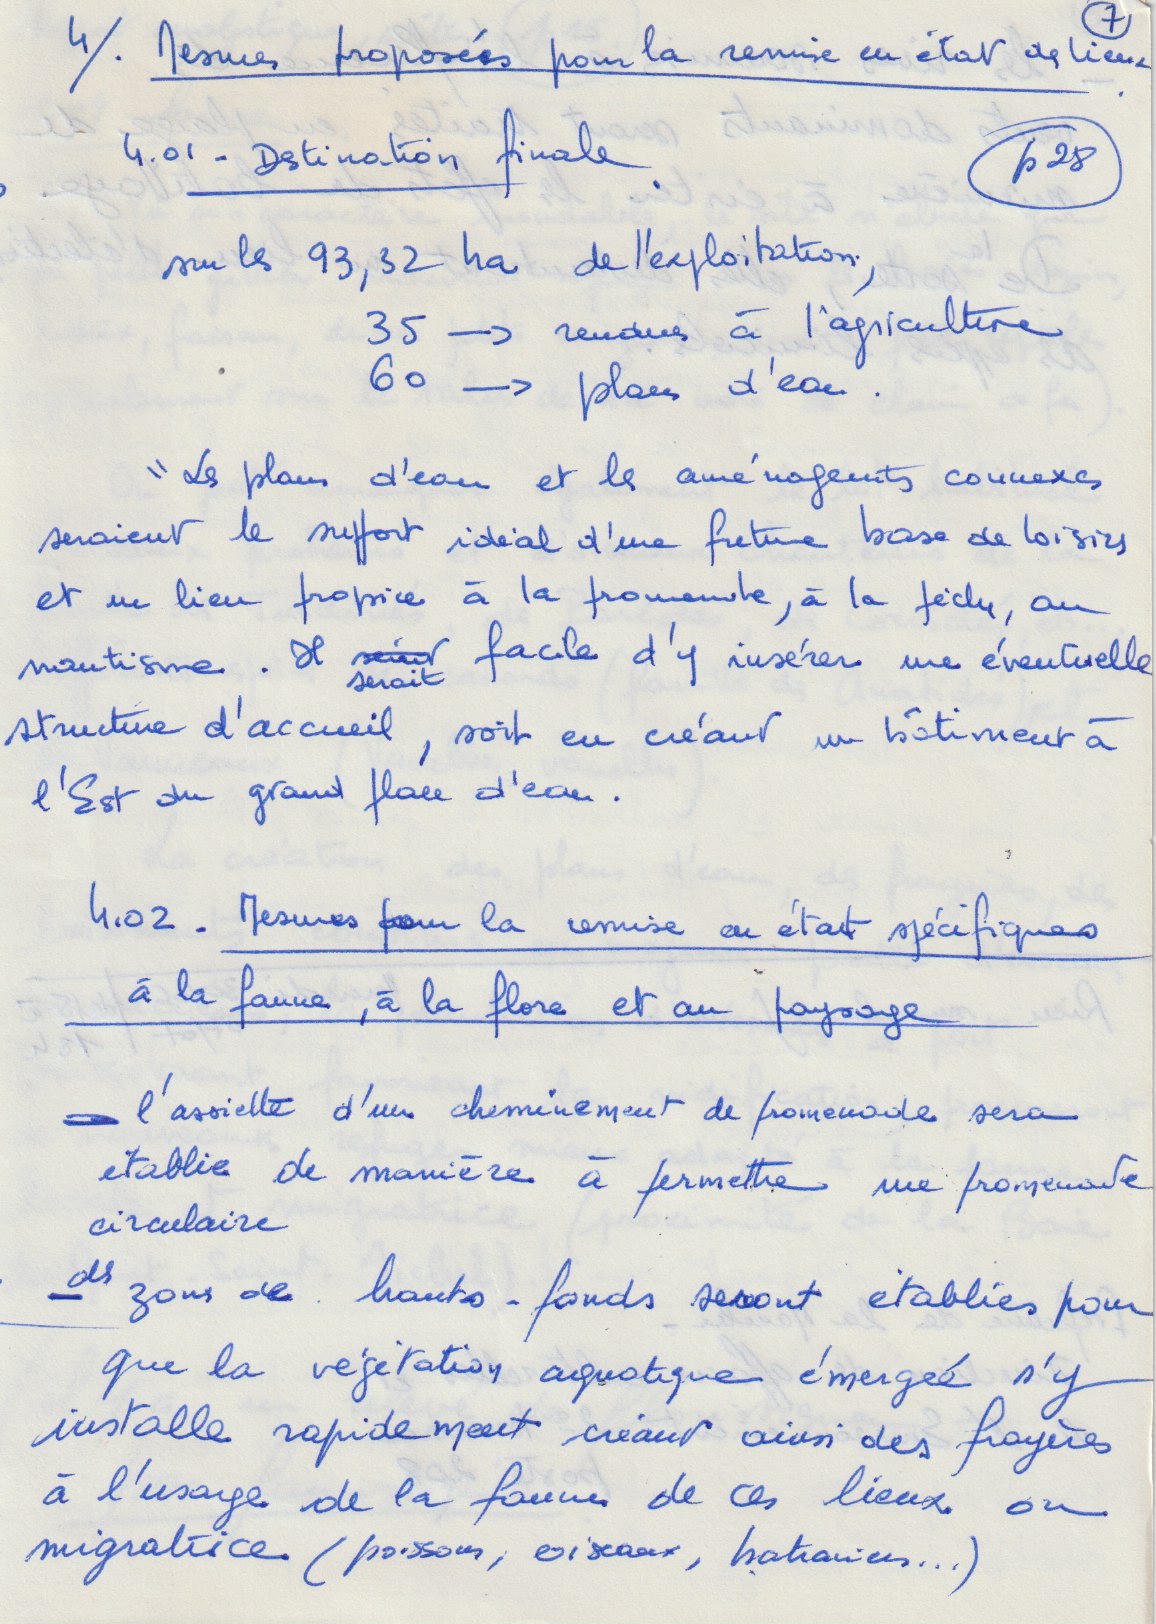 7
4/. Mesures proposées pour la remise en état des lieux.
4.01 - Destination finale.
p 28
sur les 93,32 ha de l'exploitation,
35 —> rendues à l'agriculture
60 —> plans d'eau.
"Les plans d'eau et les aménagents connexes
seraient le support idéal d'une future base de loisirs
et un lieu propice à la promenade, à la pêche, au
nautisme. Il serait facile d'y insérer une éventuelle
structure d'accueil, soit en créant un bâtiment à
l'Est du grand plan d'eau.
4.02. Mesures pour la remise en état spécifiques
à la faune, à la flore et au paysage
- l'assiette d'un cheminement de promenade sera
établie de manière à permettre une promenade
circulaire
- des zones de hauts-fonds seront établies pour
que la végétation aquatique émergée s'y
installe rapidement créant ainsi des frayères
à l'usage de la faune de ces lieux ou
migratrice (poissons, oiseaux, batraciens...)